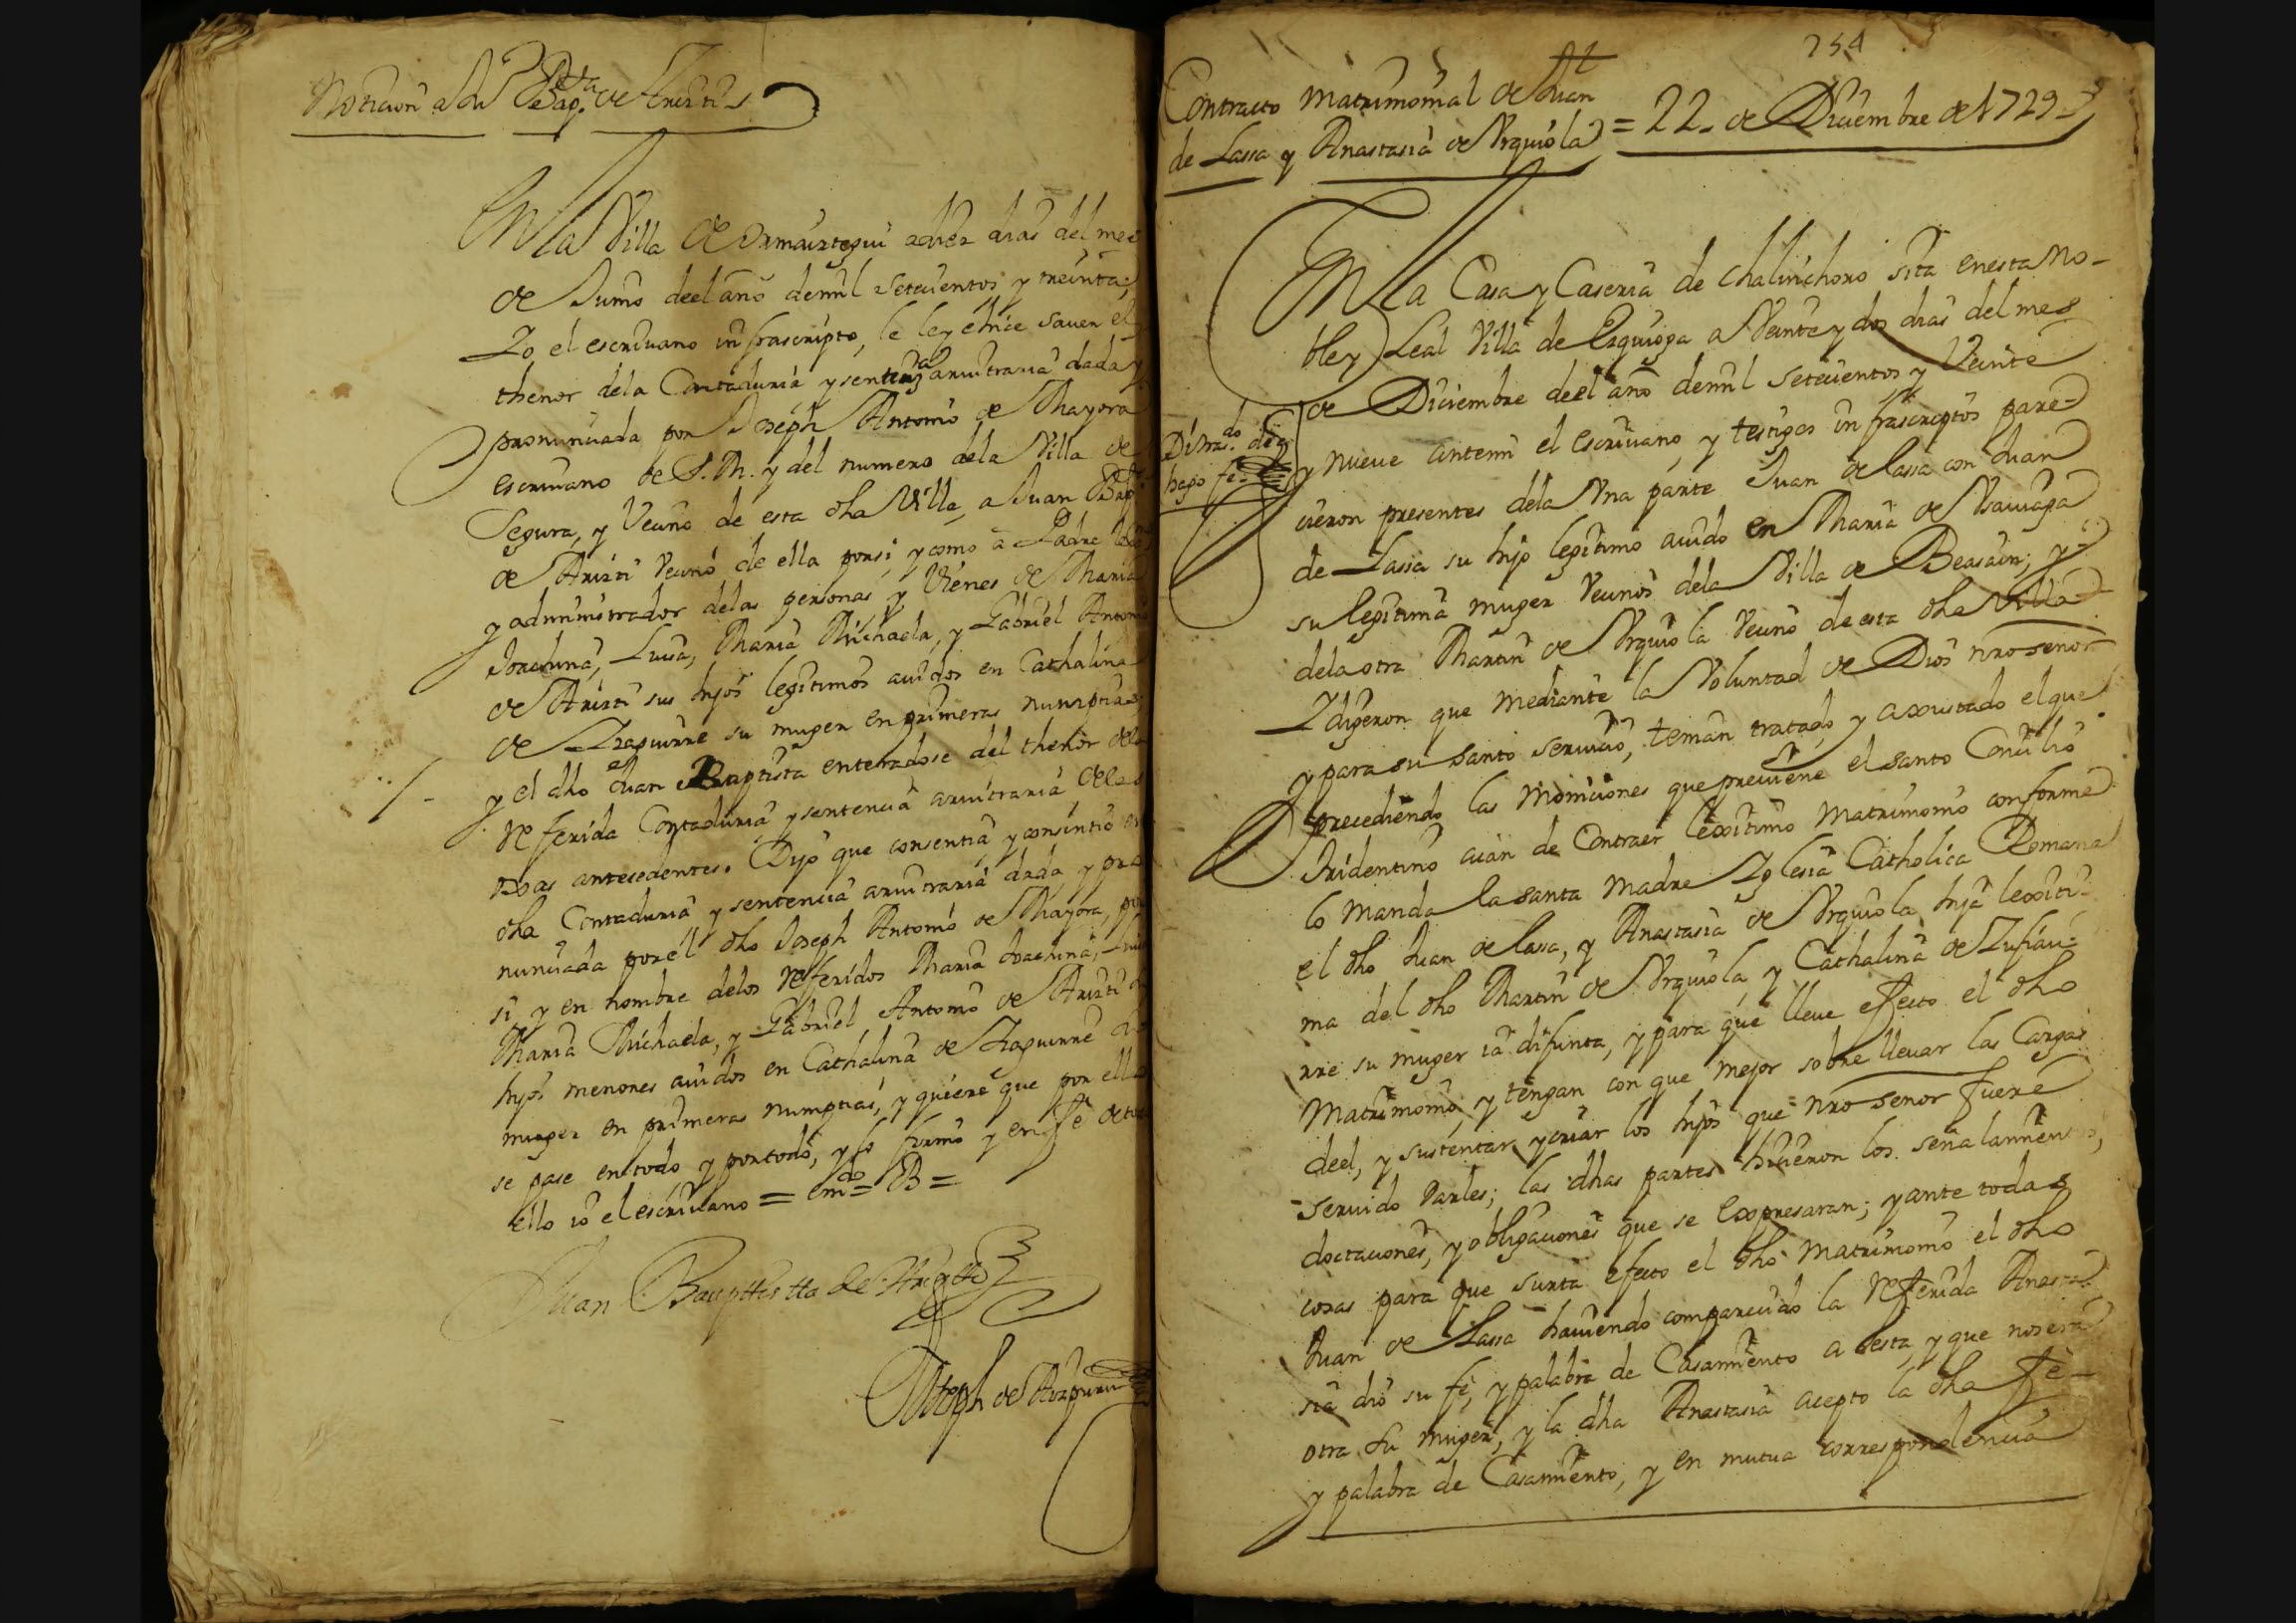 Notificaon a Juº Bapta de Arizti
En la Villa de Ormaiztegui a diez dias del mes
de Junio de el año de mil setecientos y treinta,
Yo el escrivano infrascripto, le ley e hice saver el
thenor de la Contaduria y sentenza arvitraria dada y
pronunciada por Joseph Antonio de Mayora
escrivano de S. M. y del numero de la Villa de
Segura, y Vecino de esta dha Villa, a Juan Bapta
de Arizti Vecino de ella por si, y como a Padre
y administrador de las personas y Vienes de Maria
Joachina, Luisa, Maria Michaela, y Gabriel Antonio
de Arizti sus hijos legitimos avidos en Cathalina
de Yzaguirre su muger en primeras numptias
y el dho Juan Baptista enteradose del thenor de la
referida Contaduria y sentencia arvitraria de las
oxas antecedentes. Dijo que consentia y consintio en
dha Contaduria y sentencia arvitraria dada y pro
nunciada por el dho Joseph Antonio de Mayora, por
si y en nombre de los referidos Maria Joachina, Luisa
Maria Michaela, y Gabriel Antonio de Arizti
hijos menores avidos en Cathalina de Yzaguirre
muger en primeras numptias, y quiere que por ella
se pase en todo y por todo, y lo firmo y en fe de todo
ello io el escrivano = emdo = B =
Juan Bauptista de Arizti
Joseph de Aizpuru
254
Contracto matrimonial de Juan
de Lassa y Anastasia de Vrquiola = 22 de Diciembre de 1729
En la Casa y Caseria de Chalinchoro sita en esta No-
ble y Leal Villa de Ezquioga a Veinte y dos dias del mes
de Diciembre de el año de mil setecientos y Veinte
y nueve ante mi el escrivano, y testigos infrascriptos pare-
hago fe
cieron presentes de la Vna parte Juan de Lassa con Juan
de Lassa su hijo legitimo avido en Maria de Vsauiaga
su legitima muger Vecinos de la Villa de Beasain; y
de la otra Martin de Vrquiola Vecino de esta dha Villa
Y digeron que mediante la Voluntad de Dios nro señor
y para su santo servicio, tenian tratado, y axustado el que
precediendo las Moniciones que previene el santo Concilio
Tridentino aian de Contraer lexitimo Matrimonio conforme
lo manda la santa Madre Yglesia Catholica Romana
el dho Juan de Lassa, y Anastasia de Vrquiola hija lexiti-
ma del dho Martin de Vrquiola, y Cathalina de Zufiau-
rre su muger ia difunta, y para que lleve efecto el dho
Matrimonio, y tengan con que mejor sobre llevar las Cargas
de el, y sustentar, y criar los hijos que nro señor fuere
servido darles; las dhas partes hicieron los señalamientos,
doctaciones, y obligaciones que se expresaran; y ante todas
cosas para que surta efecto el dho Matrimonio el dho
Juan de Lassa haviendo comparecido la referida Anasta-
sia dio su fe, y palabra de Casamiento a esta y que no sera
otra su muger, y la dha Anastasia acepto la dha fe
y palabra de Casamiento, y en mutua correspondencia